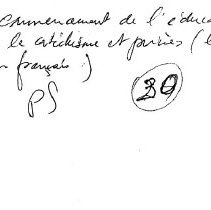 commencement de l'éduca
le catéchisme et prières (l
n français)
PS
30